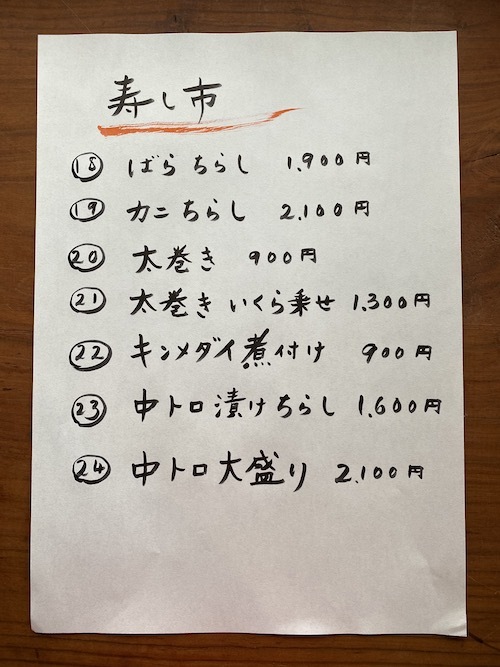 寿し市
⑱ ばらちらし 1,900円
⑲ カニちらし 2,100円
⑳ 太巻き 900円
㉑ 太巻き いくら乗せ 1,300円
㉒ キンメダイ煮付け 900円
㉓ 中トロ漬けちらし 1,600円
㉔ 中トロ大盛り 2,100円